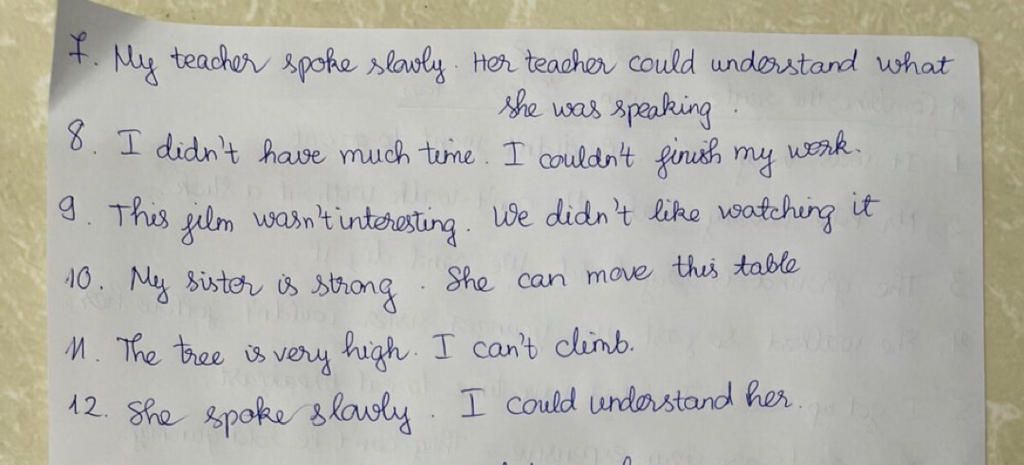 7. My teacher spoke slowly. Her teacher could understand what
she was speaking.
8. I didn't have much time. I couldn't finish my work.
9. This film wasn't interesting. We didn't like watching it
10. My sister is strong. She can move this table
11. The tree is very high. I can't climb.
12. She spoke slowly. I could understand her.